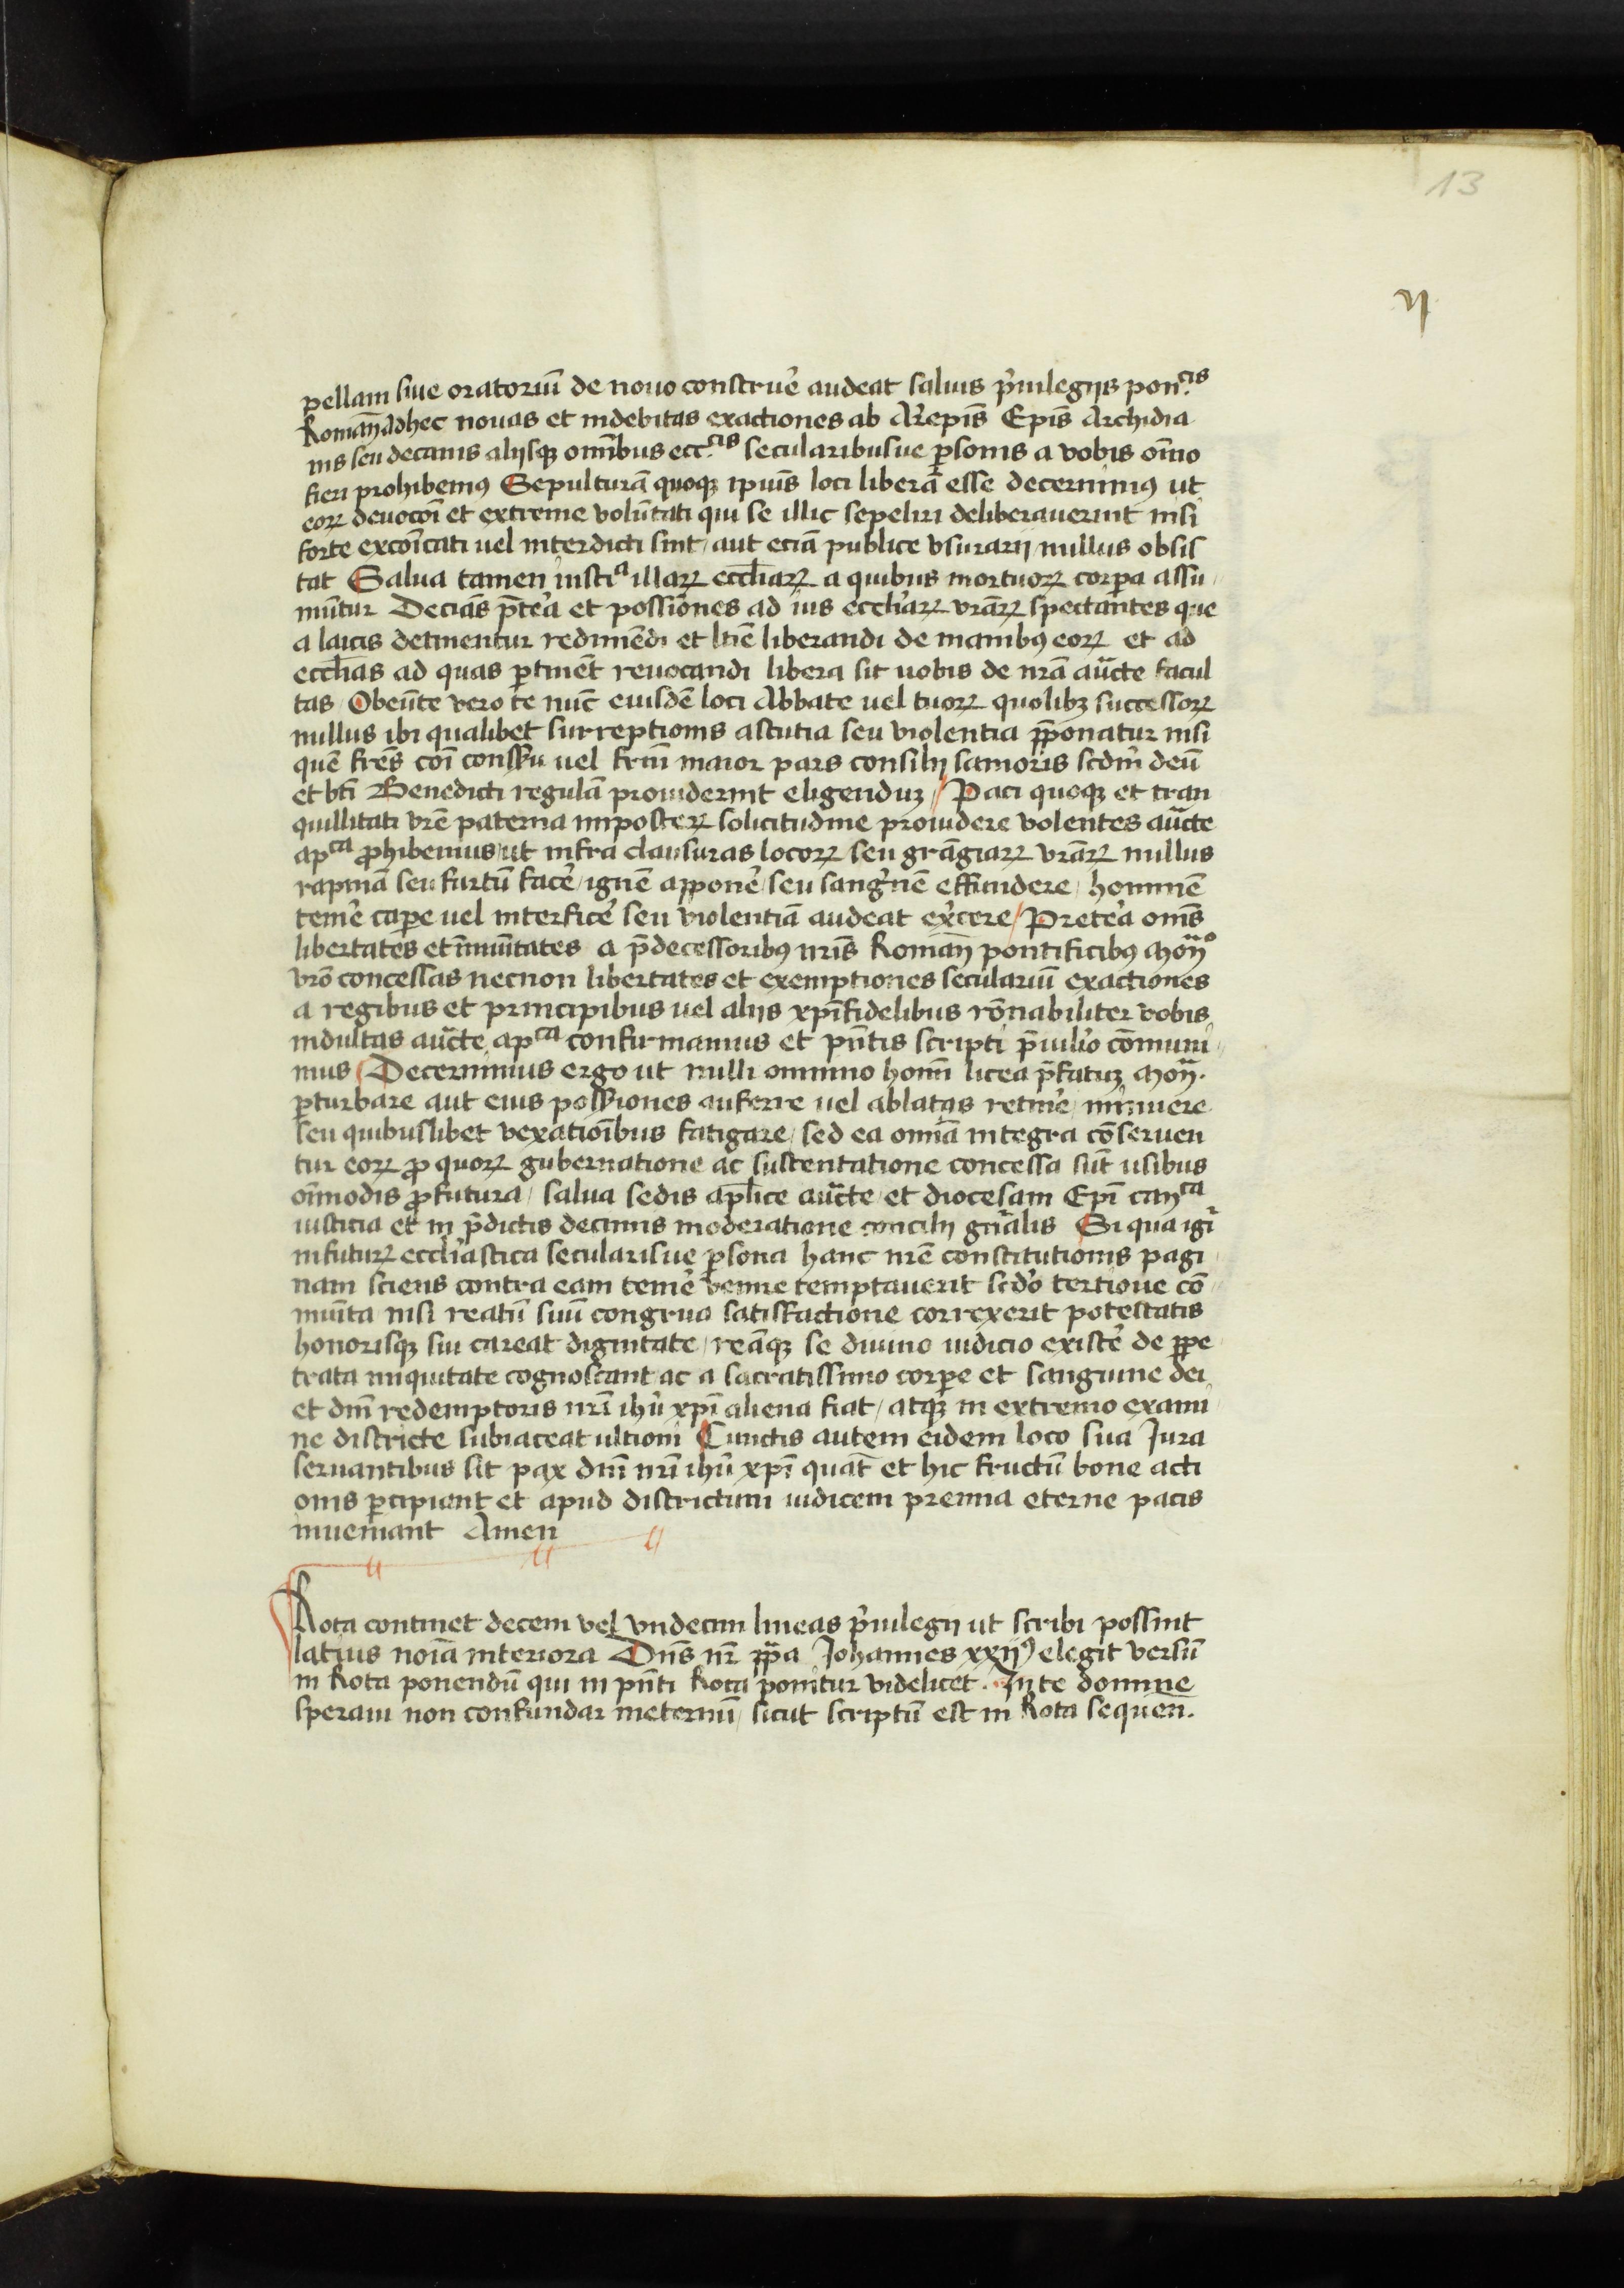 13
vj
pellam siue oratoriū de nouo construe͛ audeat saluis p͛uilegijs pon.cis
Roman̄ Adhec nouas et indebitas exactiones ab Ar̄epīs Epīs Archidia
nis seu decanis alijsqꝫ omībus ecc.cis secularibusue ꝑsonis a vobis oīno
fieri prohibemꝰ Sepulturā quoqꝫ ipiuꝰ loci liberā esse decernimꝰ ut
eoꝝ deuocōi et extreme volūtati qui se illic sepeliri deliberauerint nisi
forte excoīcati uel interdicti sint / aut eciā publice vsurarij / nullus obsis
tat Salua tamen iusticia illaꝝ eccl̄iaꝝ a quibus mortuoꝝ corꝑa assu
mūtur Decīas p̄te͛a et possiōnes ad ius eccl̄iaꝝ vr̄aꝝ spectantes que
a laicis detinentur redimēdi et ltīe liberandi de manibꝰ eoꝝ et ad
eccl̄ias ad quas ꝑtinēt reuocandi libera sit uobis de nr̄a aucte͛ facul
tas Obeūte vero te nūc eiusdē loci Abbate uel tuoꝝ quolibꝫ successoꝝ
nullus ibi qualibet surreptionis astutia seu violentia p̄ponatur nisi
quē fr̄es coī consēsu uel fr̄um maior pars consilij sanioris scdm̄ deū
et btī Benedicti regulā prouiderint eligenduꝫ // Paci quoqꝫ et tran
quillitati vr̄e paterna imposteꝝ solicitudine prouidere volentes aucte͛
apca ꝓhibemus / ut infra clausuras locoꝝ seu grāgiaꝝ vr̄aꝝ nullus
rapinā seu furtū face͛ / ignē appone͛ / seu sang͛nē effundere / hominē
teme͛ caꝑe uel interfice͛ seu violentiā audeat exe͛cere / Prete͛a om̄s
libertates et īmūitates a p̄decessoribꝰ nr̄is Roman̄ pontificibꝰ Mon̄o
vr̄o concessas necnon libertates et exemptiones seculariū exactiones
a regibus et principibus uel alijs xp̄ifidelibus rōnabiliter vobis
indultas aucte͛ apca confirmamus et pn̄tis scripti p̄uilio͛ cōmuni
mus Decernimus ergo ut nulli omnino homī licea p̄fatuꝫ Mon̄.
ꝑturbare aut eius possiones auferre uel ablatas retine͛ / minuere
seu quibuslibet vexatiōibus fatigare / sed ea omīa integra cōseruen
tur eoꝝ ꝓ quoꝝ gubernatione ac sustentatione concessa sūt usibus
oīmodis ꝓfutura / salua sedis apl̄ice aucte͛ / et diocesani Epī canca
iusticia et in p̄dictis decimis moderatione concilij gn̄alis Si qua igi͛
infutuꝝ eccl̄iastica secularisue ꝑsona hanc nr̄e constitutionis pagi
nam sciens contra eam teme͛ venire temptauerit scdo͛ tertioue cō
mūita nisi reatū suū congrua satisfactione correxerit potestatis
honorisqꝫ sui careat dignitate / reāqꝫ se diuino iudicio existe͛ de ꝑpe
trata iniquitate cognoscant ac a sacratissimo corꝑe et sanguine dei
et dnī redemptoris nr̄i ihū xp̄i aliena fiat / atqꝫ in extremo exami
ne districte subiaceat ultioni Cunctis autem eidem loco sua Jura
seruantibus sit pax dnī nr̄i ihū xp̄i quāt et hic fructū bone acti
onis ꝑcipiant et apud districtum iudicem premia eterne pacis
inueniant Amen
Rota continet decem vel vndecim lineas p͛uilegij ut scribi possint
latius noīa interiora Dn̄s nr̄ pp̄a Johannes xxijꝰ elegit versū
in Rota ponendū qui in pn̄ti Rota ponitur videlicet . In te domine
speraui non confundar ineternū / sicut scriptū est in Rota sequen̄.